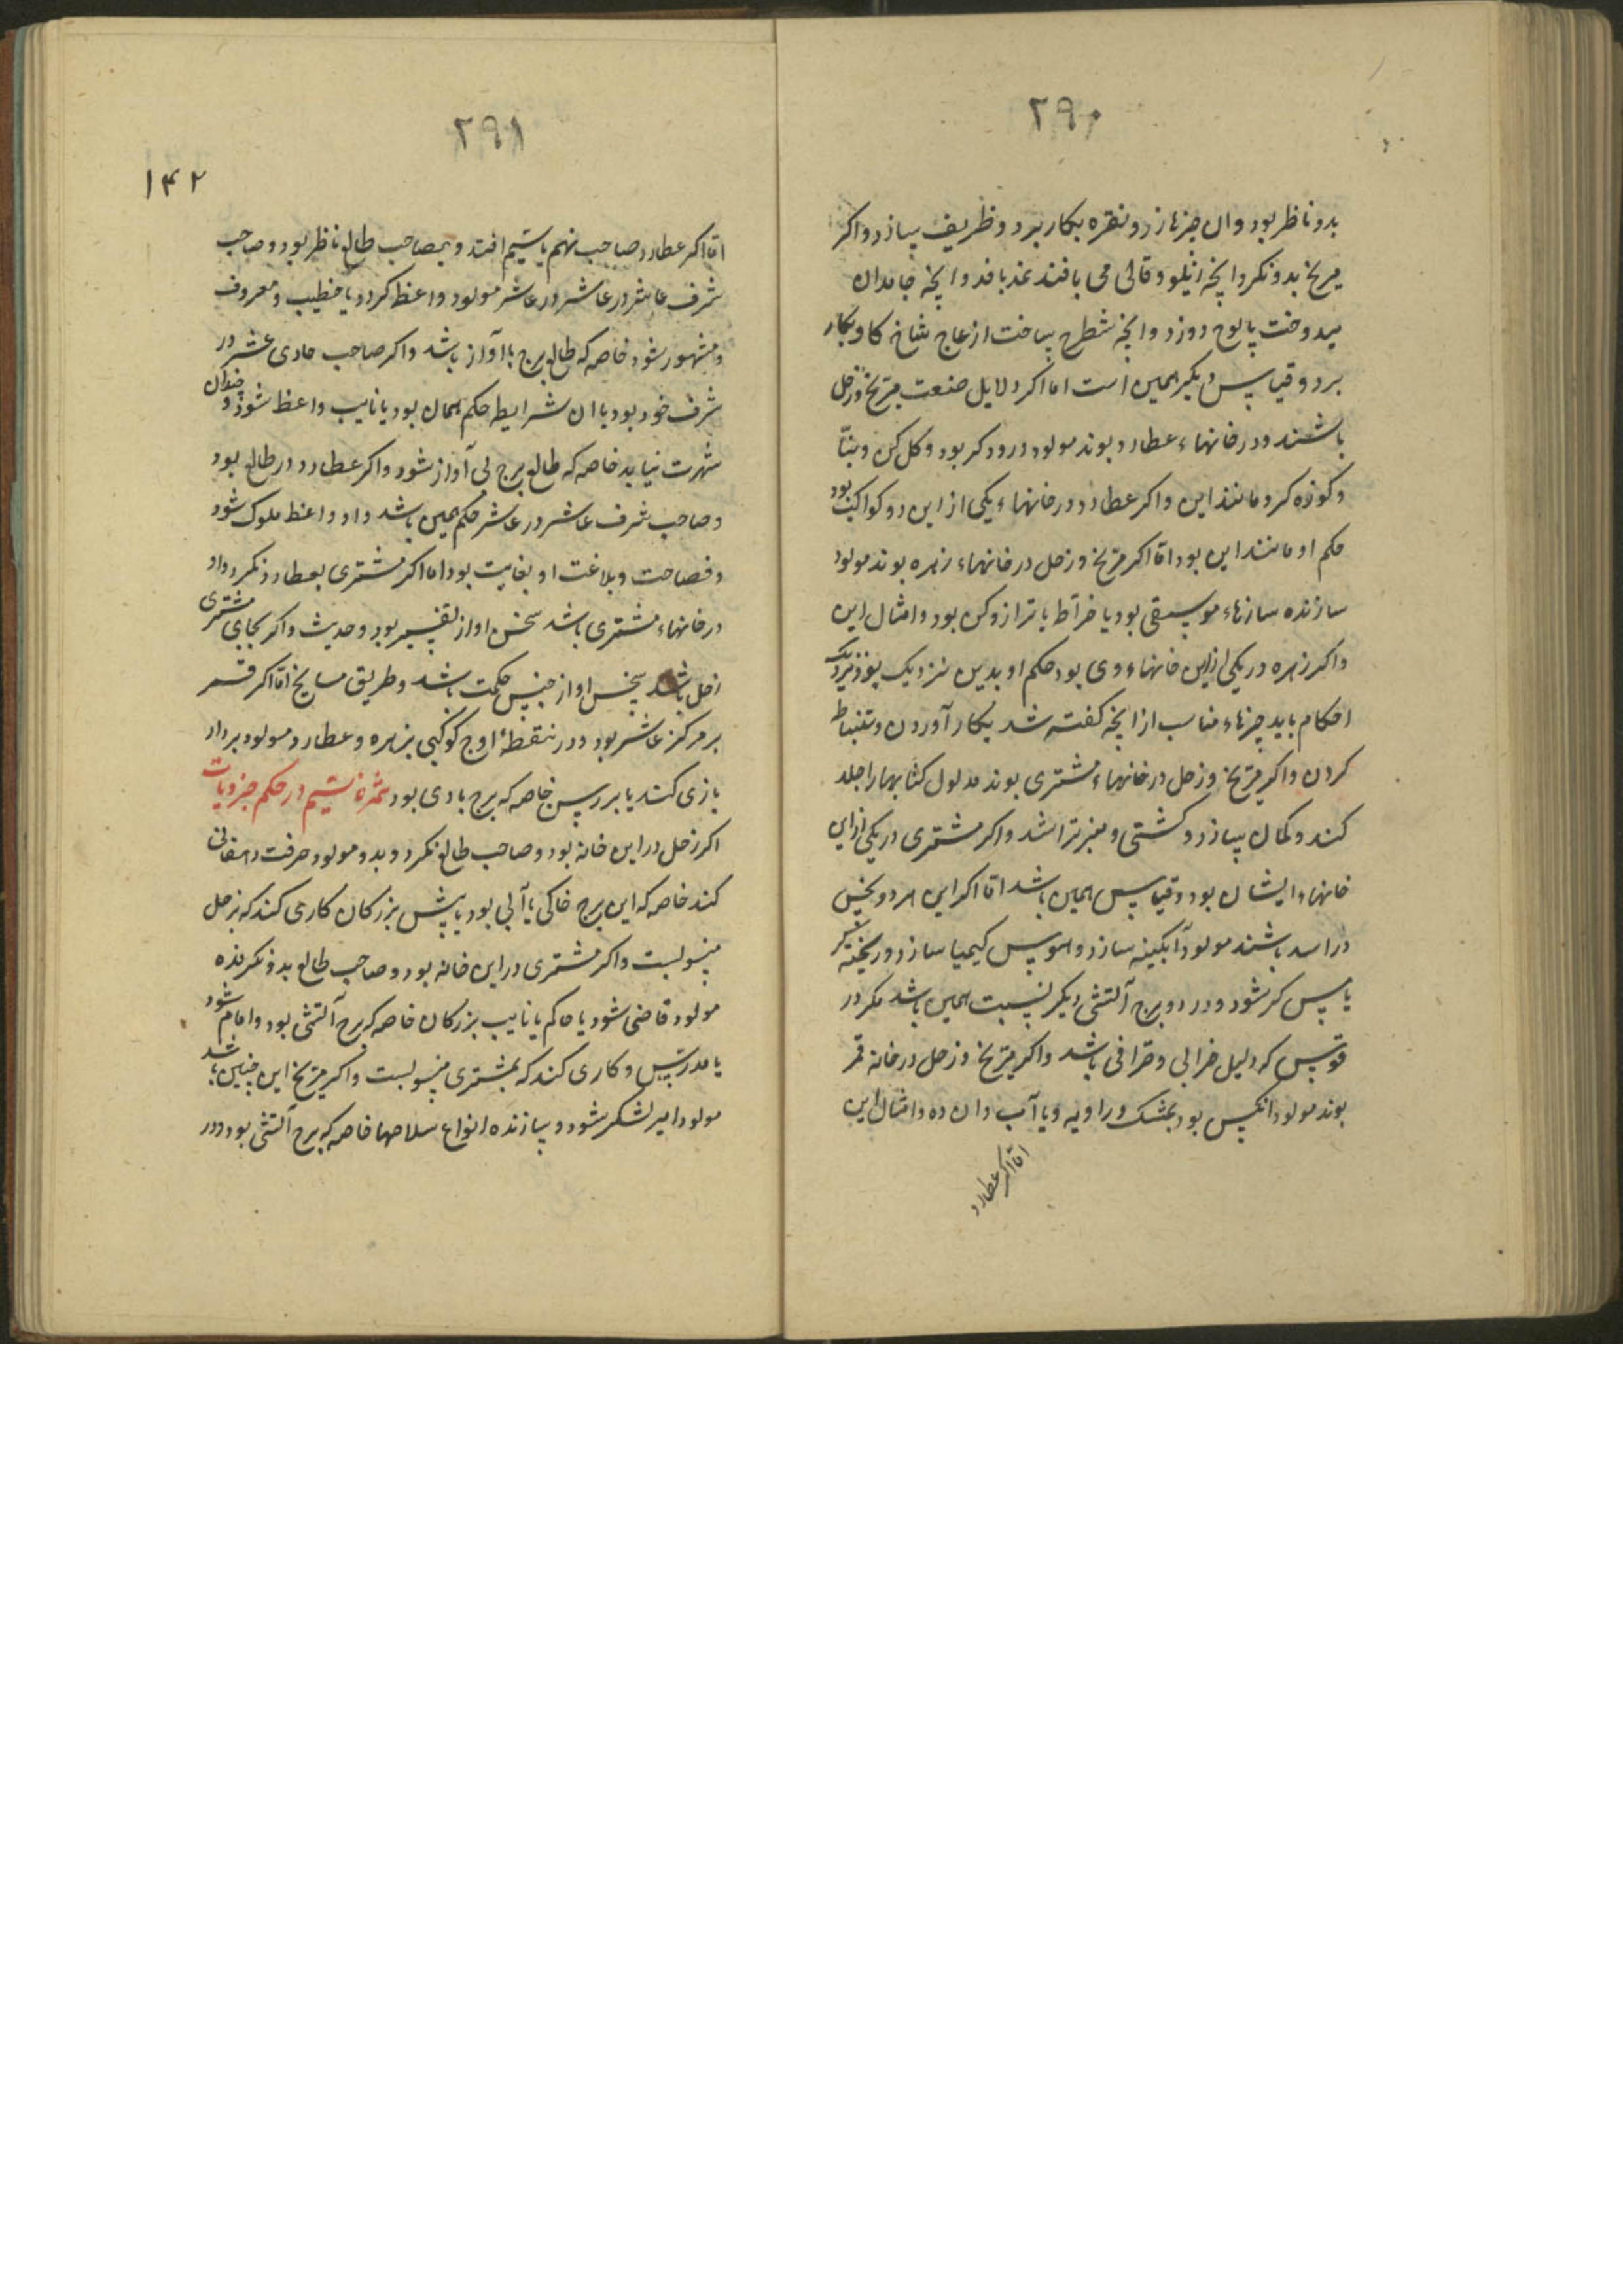 ۲۹۰
بدو ناظر بود وان چیزها زر و نقره بکار برد و ظریف بسازد واکر
مریخ بدو نکرد وانچه زیلو و قالی می بافند نمد بافد وانچه جامدان
میدوخت پالوج دوزد وانچه شطرنج میساخت از عاج شاخ کاو بکار
برد و قیاس دیکر همین است اما اکر دلایل صنعت مریخ و زحل
باشند و در خانهاء عطارد بوند مولود درودکر بود و کل کن و بنّا
و کوزه کر و مانند این واکر عطارد در خانهاء یکی از این دو کواکب بود
حکم او مانند این بود امّا اکر مریخ و زحل در خانهاء زهره بوند مولود
سازنده سازهاء موسیقی بود یا خرّاط یا ترازو کن بود و امثال این
واکر زهره در یکی از این خانهاء وی بود حکم او بدین نزدیک بود نزدیک
احکام باید چیزهاء مناسب از انچه کفته شد بکار آوردن و ستنباط
کردن واکر مریخ و زحل در خانهاء مشتری بوند مدلول کتابها را جلد
کند و کمان بسازد و کشتی و منبر تراشد واکر مشتری در یکی از این
خانهاء ایشان بود و قیاس همین باشد امّا اکر این هر دو نحس
در اسد باشند مولود آبکینه سازد و هوس کیمیا سازد و ریخته کر
یا مس کر شود و در دو برج آتشی دیکر نسبت همین باشد مکر در
قوس که دلیل خرابی و صرافی باشد واکر مریخ و زحل در خانه قمر
بوند مولود انکس بود بمشک و راویه و یا آب دان ده و امثال این
امّا اکر عطارد
۲۹۱
۱۴۲
امّا اکر عطارد صاحب نهم یا سیم افتد و بصاحب طالع ناظر بود و صاحب
شرف عاشر در عاشر در عاشر مولود واعظ کردد یا خطیب و معروف
و مشهور شود خاصه که طالع برج با آواز باشد واکر صاحب حادی عشر در
شرف خود بود با ان شرایط حکم همان بود یا نایب واعظ شود و چندان
شهرت نیابد خاصه که طالع برج بی آواز شود واکر عطارد در طالع بود
و صاحب شرف عاشر در عاشر حکم همین باشد و او واعظ ملوک شود
و فصاحت و بلاغت او بغایت بود اما اکر مشتری بعطارد نکرد و او
در خانهاء مشتری باشد سخن او از تفسیر بود و حدیث واکر بجای مشتری
زحل باشد سخن او از جنس حکمت باشد و طریق مشایخ امّا اکر قمر
بر مرکز عاشر بود و در نقطهٔ اوج کوکبی بزهره و عطارد مولود بر دار
بازی کند یا بر رسن خاصه که برج بادی بود ثمره تاسیم در حکم جزویات
اکر زحل در این خانه بود و صاحب طالع نکرد و بدو مولود حرفت دهقانی
کند خاصه که این برج خاکی یا آبی بود یا پیش بزرکان کاری کند که بزحل
منسوبست واکر مشتری در این خانه بود و صاحب طالع بدو نکرنده
مولود قاضی شود یا حاکم یا نایب بزرکان خاصه که برج آتشی بود و امام شود
یا مدرّس و کاری کند که بمشتری منسوبست واکر مریخ این چنین باشد
مولود امیر لشکر شود و سازنده انواع سلاحها خاصه که برج آتشی بود و در